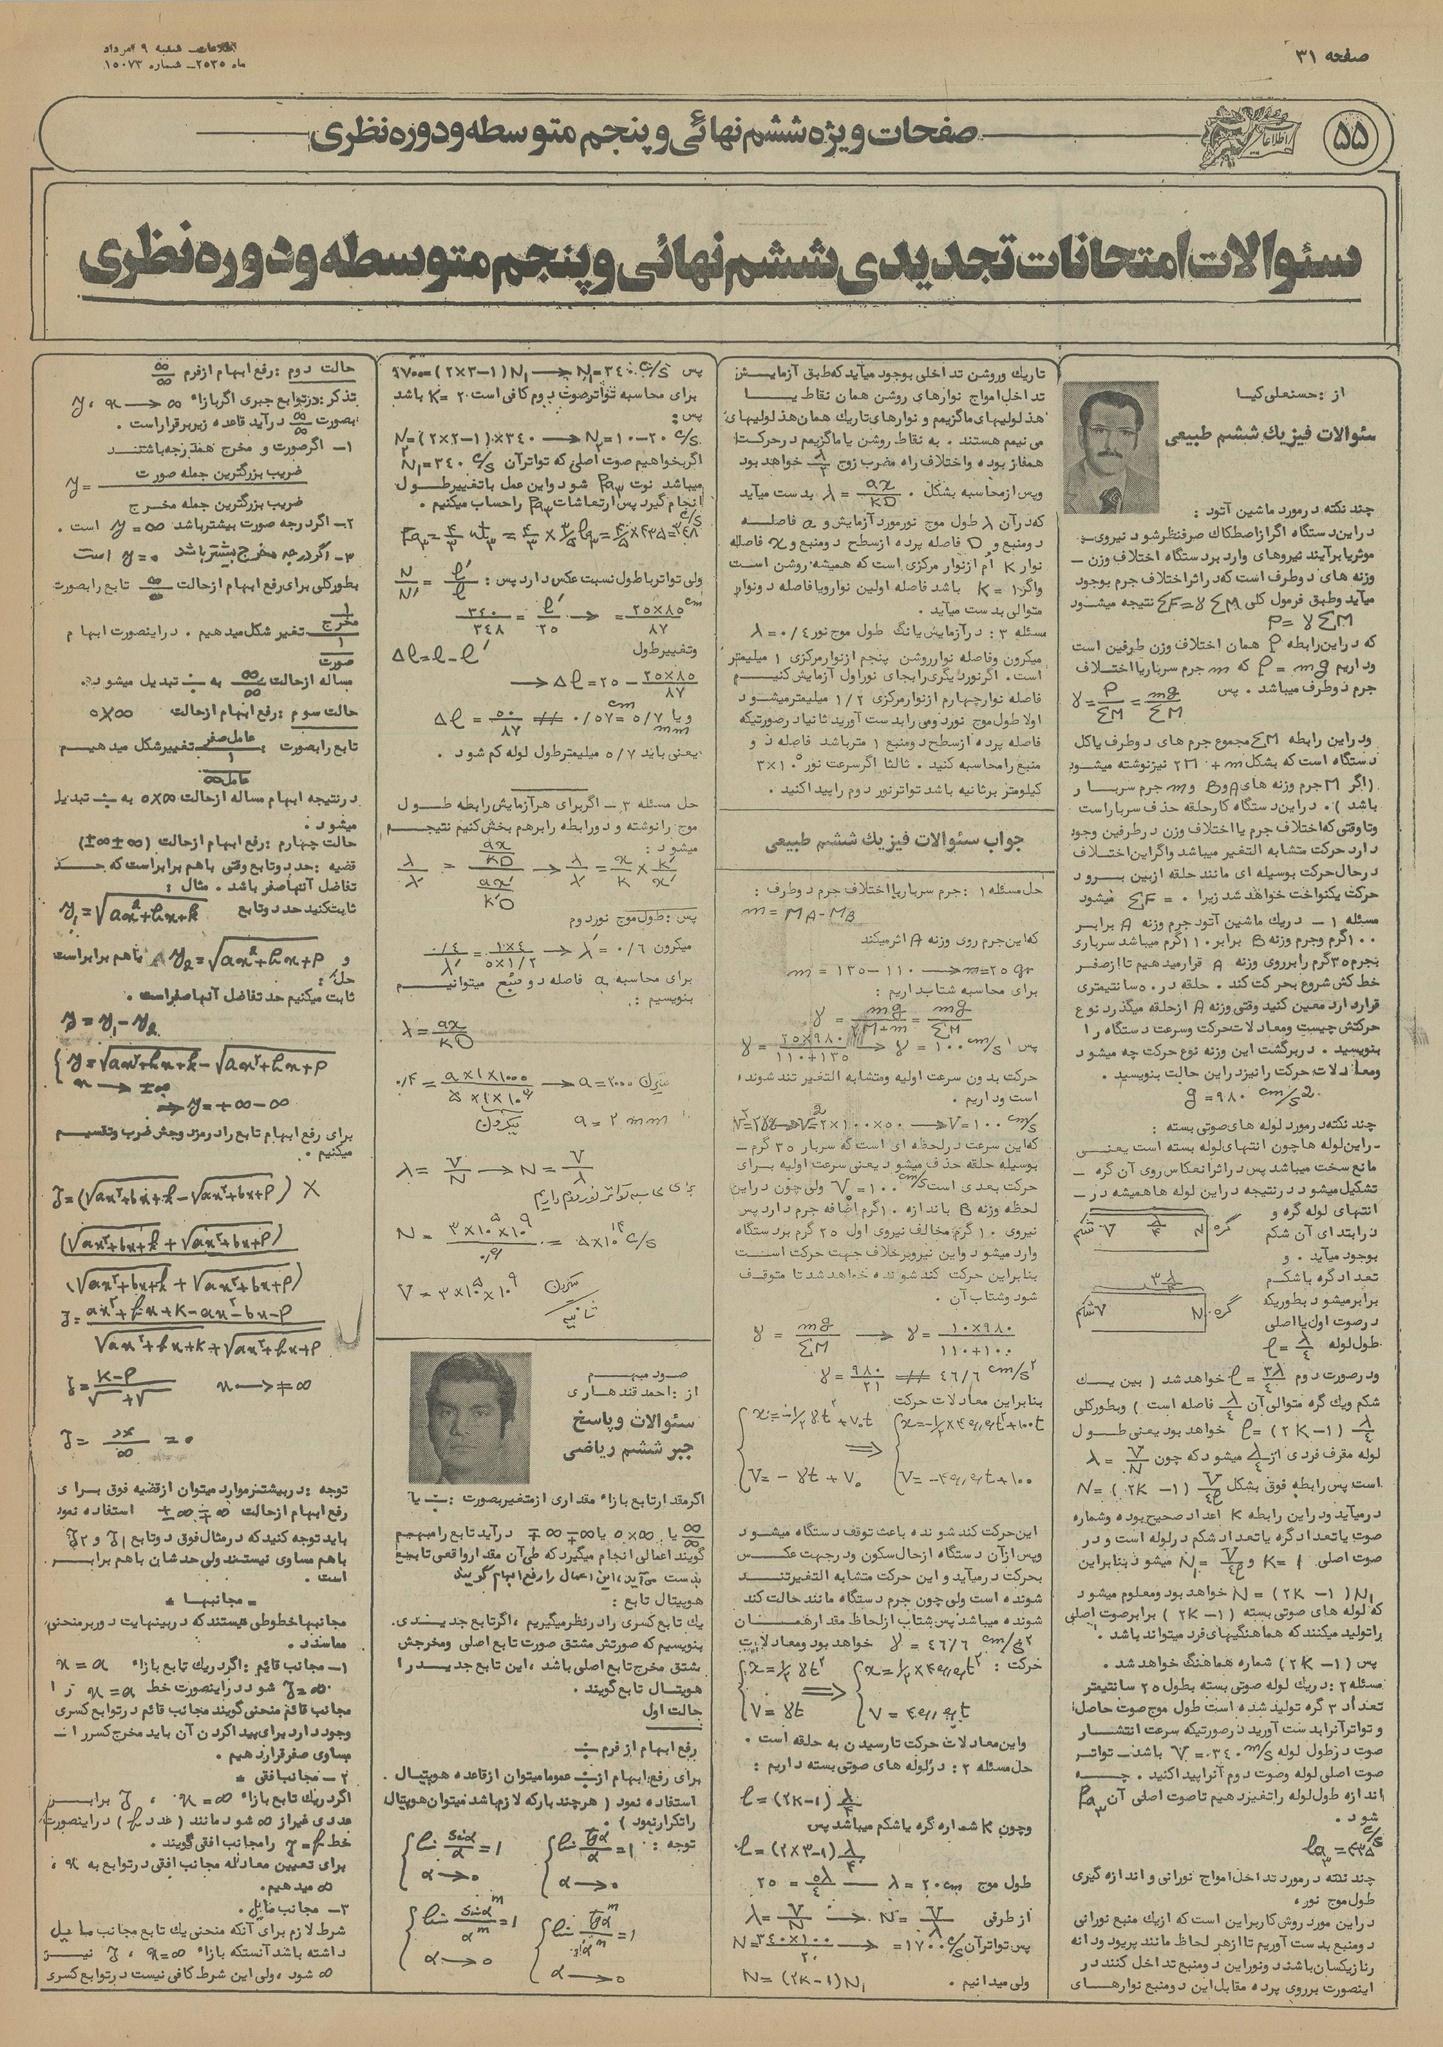 صفحه ۳۱
اطلاعات شنبه ۹ مرداد
ماه ۲۵۳۵ - شماره ۱۵۰۷۳
۵۵
صفحات ویژه ششم نهائی و پنجم متوسطه و دوره نظری
سئوالات امتحانات تجدیدی ششم نهائی و پنجم متوسطه و دوره نظری
از : حسنعلی کیا
سئوالات فیزیک ششم طبیعی
چند نکته در مورد ماشین آتود :
در این دستگاه اگر از اصطکاک صرفنظر شود نیروی
موثر یا برآیند نیروهای وارد بر دستگاه اختلاف وزن -
وزنه های دو طرف است که در اثر اختلاف جرم بوجود
میآید و طبق فرمول کلی ΣF=γΣM نتیجه میشود
P=γΣM
که در این رابطه P همان اختلاف وزن طرفین است
و داریم P=mg که m جرم سربار یا اختلاف
جرم دو طرف میباشد . پس γ=P/ΣM=mg/ΣM
و در این رابطه ΣM مجموع جرم های دو طرف یا کل
دستگاه است که بشکل ۲M+m نیز نوشته میشود
(اگر M جرم وزنه های A و B و m جرم سربار
باشد ). در این دستگاه کار حلقه حذف سربار است
و تا وقتی که اختلاف جرم یا اختلاف وزن در طرفین وجود
دارد حرکت متشابه التغیر میباشد و اگر این اختلاف
در حال حرکت بوسیله ای مانند حلقه از بین برود
حرکت یکنواخت خواهد شد زیرا ΣF=۰ میشود
مسئله ۱ - در یک ماشین آتود جرم وزنه A برابر
۱۰۰ گرم وجرم وزنه B برابر ۱۱۰ گرم میباشد سرباری
بجرم ۳۵ گرم را برروی وزنه A قرار میدهیم تا از صفر
خط کش شروع بحرکت کند . حلقه در ۵۰ سانتیمتری
قرار دارد معین کنید وقتی وزنه A از حلقه میگذرد نوع
حرکتش چیست و معادلات حرکت و سرعت دستگاه را
بنویسید . در برگشت این وزنه نوع حرکت چه میشود
و معادلات حرکت را نیز در این حالت بنویسید .
g=۹۸۰ cm/s2
چند نکته در مورد لوله های صوتی بسته :
در این لوله ها چون انتهای لوله بسته است یعنی
مانع سخت میباشد پس در اثر انعکاس روی آن گره -
تشکیل میشود در نتیجه در این لوله ها همیشه در -
انتهای لوله گره و
در ابتدای آن شکم
بوجود میآید . و
تعداد گره با شکم
برابر میشود بطوریکه
در صوت اول یا اصلی
طول لوله l=λ/۴
گره N λ/۴ V شکم
گره N ۳λ/۴ V شکم
و در صوت دوم l=۳λ/۴ خواهد شد ( بین یک
شکم و یک گره متوالی آن λ/۴ فاصله است ) و بطور کلی
l=(۲K-۱)λ/۴ خواهد بود یعنی طول
لوله مضرب فردی از λ/۴ میشود که چون λ=V/N
است پس رابطه فوق بشکل N=(۲K-۱)V/۴l
در میآید و در این رابطه K اعداد صحیح بوده و شماره
صوت یا تعداد گره یا تعداد شکم در لوله است و در
صوت اصلی K=۱ و N₁=V/۴l میشود بنابراین
N=(۲K-۱)N₁ خواهد بود و معلوم میشود
که لوله های صوتی بسته (۲K-۱) برابر صوت اصلی
را تولید میکنند که هماهنگیهای فرد میتواند باشد .
پس (۲K-۱) شماره هماهنگ خواهد شد .
مسئله ۲ : در یک لوله صوتی بسته بطول ۲۵ سانتیمتر
تعداد ۳ گره تولید شده است طول موج صوت حاصل
و تواتر آنرا بدست آورید در صورتیکه سرعت انتشار
صوت در طول لوله V=۳۴۰ m/s باشد - تواتر
صوت اصلی لوله وصوت دوم آنرا پیدا کنید . چه
اندازه طول لوله را تغیر دهیم تا صوت اصلی آن Fa₃
شود .
la₃=۴۳۵ c/s
چند نکته در مورد تداخل امواج نورانی و اندازه گیری
طول موج نور :
در این مورد روش کار بر این است که از یک منبع نورانی
دو منبع بدست آوریم تا از هر لحاظ مانند پریود و دامنه
و رنگ یکسان باشند و نور این دو منبع تداخل کنند در
اینصورت برروی پرده مقابل این دو منبع نوارهای
تاریک و روشن تداخلی بوجود میآید که طبق آزمایش
تداخل امواج نوارهای روشن همان نقاط یا
هذلولیهای ماگزیمم و نوارهای تاریک همان هذلولیهای
می نیمم هستند . به نقاط روشن یا ماگزیمم در حرکت
همفاز بوده و اختلاف راه مضرب زوج λ/۲ خواهد بود
و پس از محاسبه بشکل λ=ax/KD بدست میآید
که در آن λ طول موج نور مورد آزمایش و a فاصله
دو منبع و D فاصله پرده از سطح دو منبع و x فاصله
نوار K اُم از نوار مرکزی است که همیشه روشن است
و اگر K=۱ باشد فاصله اولین نوار و یا فاصله دو نوار
متوالی بدست میآید .
مسئله ۳ : در آزمایش یانگ طول موج نور λ=۰/۴
میکرون و فاصله نوار روشن پنجم از نوار مرکزی ۱ میلیمتر
است . اگر نور دیگری را بجای نور اول آزمایش کنیم
فاصله نوار چهارم از نوار مرکزی ۱/۲ میلیمتر میشود
اولا طول موج نور دومی را بدست آورید ثانیا در صورتیکه
فاصله پرده از سطح دو منبع ۱ متر باشد فاصله دو
منبع را محاسبه کنید . ثالثا اگر سرعت نور ۳×۱۰⁵
کیلومتر بر ثانیه باشد تواتر نور دوم را پیدا کنید .
جواب سئوالات فیزیک ششم طبیعی
حل مسئله ۱ : جرم سربار یا اختلاف جرم دو طرف :
m=MA-MB
که این جرم روی وزنه A اثر میکند
m=۱۳۵-۱۱۰ → m=۲۵ gr
برای محاسبه شتاب داریم :
γ=mg/۲M+m=mg/ΣM
پس γ=۲۵×۹۸۰/۱۱۰+۱۳۵ → γ=۱۰۰ cm/s²
حرکت بدون سرعت اولیه و متشابه التغیر تند شونده
است و داریم .
V²=۲γx → V²=۲×۱۰۰×۵۰ → V=۱۰۰ cm/s
که این سرعت در لحظه ای است که سربار ۳۵ گرم -
بوسیله حلقه حذف میشود یعنی سرعت اولیه برای
حرکت بعدی است V₀=۱۰۰ cm/s ولی چون در این
لحظه وزنه B باندازه ۱۰ گرم اضافه جرم دارد پس
نیروی ۱۰ گرم مخالف نیروی اول ۲۵ گرم بر دستگاه
وارد میشود و این نیرو بر خلاف جهت حرکت است
بنابراین حرکت کند شونده خواهد شد تا متوقف
شود و شتاب آن .
γ=mg/ΣM → γ=۱۰×۹۸۰/۱۱۰+۱۰۰
γ=۹۸۰/۲۱ ≠ ۴۶/۶ cm/s²
بنابراین معادلات حرکت
x=-۱/۲γt²+V₀t ⇒ x=-۱/۲×۴۶/۶t²+۱۰۰t
V=-γt+V₀ V=-۴۶/۶t+۱۰۰
این حرکت کند شونده باعث توقف دستگاه میشود
و پس از آن دستگاه از حال سکون و در جهت عکس
بحرکت در میآید و این حرکت متشابه التغیر تند
شونده است ولی چون جرم دستگاه مانند حالت کند
شونده میباشد پس شتاب از لحاظ مقدار همان
γ=۴۶/۶ cm/s² خواهد بود و معادلات
حرکت : x=۱/۲γt² ⇒ x=۱/۲×۴۶/۶t²
V=γt V=۴۶/۶t
و این معادلات حرکت تا رسیدن به حلقه است .
حل مسئله ۲ : در لوله های صوتی بسته داریم :
l=(۲K-۱)λ/۴
و چون K شماره گره یا شکم میباشد پس
l=(۲×۳-۱)λ/۴
طول موج λ=۲۰cm — ۲۵=۵λ/۴
از طرفی λ=V/N → N=V/λ
پس تواتر آن N=۳۴۰×۱۰۰/۲۰ → =۱۷۰۰ c/s
ولی میدانیم . N=(۲K-۱)N₁
پس ۱۷۰۰=(۲×۳-۱)N₁ → N₁=۳۴۰ c/s
برای محاسبه تواتر صوت دوم کافی است K=۲ باشد
پس :
N₂=(۲×۲-۱)×۳۴۰ → N₂=۱۰-۲۰ c/s
اگر بخواهیم صوت اصلی که تواتر آن N₁=۳۴۰ c/s
میباشد نوت Fa₃ شود و این عمل با تغییر طول
انجام گیرد پس ارتعاشات Fa₃ را حساب میکنیم .
Fa₃=۴/۳ ut₃=۴/۳×۳/۵ la₃=۴/۵×۴۳۵=۳۴۸ c/s
ولی تواتر با طول نسبت عکس دارد پس : N/N'=l'/l
۳۴۰/۳۴۸=l'/۲۵ → =۲۵×۸۵/۸۷ cm
و تغییر طول Δl=l-l'
→ Δl=۲۵-۲۵×۸۵/۸۷
Δl=۵۰/۸۷ ≠ ۰/۵۷ cm و یا ۵/۷ mm
یعنی باید ۵/۷ میلیمتر طول لوله کم شود .
حل مسئله ۳ - اگر برای هر آزمایش رابطه طول
موج را نوشته و دو رابطه را بر هم بخش کنیم نتیجه
میشود :
λ/λ'=ax/KD/ax'/K'D → λ/λ'=x/K×K'/x'
پس : طول موج نور دوم
۰/۴/λ'=۱×۴/۵×۱/۲ → λ'=۰/۶ میکرون
برای محاسبه a فاصله دو منبع میتوانیم
بنویسیم :
λ=ax/KD
۰/۴=a×۱×۱۰۰۰/۵×۱×۱۰⁶ → a=۲۰۰۰ میکرن
میکرون a=۲ mm
λ=V/N → N=V/λ
برای محاسبه تواتر نور دوم داریم
N=۳×۱۰⁵×۱۰⁹/۰/۶=۵×۱۰¹⁴ c/s
V=۳×۱۰⁵×۱۰⁹ میکرن
ثانیه
از : احمد قندهاری
سئوالات و پاسخ
جبر ششم ریاضی
اگر مقدار تابع بازاء مقداری از متغیر بصورت : ۰/۰ یا
∞/∞ یا ۰×∞ یا ∞-∞ درآید تابع را مبهم
گویند اعمالی انجام میگیرد که طی آن مقدار واقعی تابع
بدست میآید ، این اعمال را رفع ابهام گویند
هوپیتال تابع :
یک تابع کسری را در نظر میگیریم ، اگر تابع جدیدی
بنویسیم که صورتش مشتق صورت تابع اصلی و مخرجش
مشتق مخرج تابع اصلی باشد ، این تابع جدید را
هوپیتال تابع گویند .
حالت اول
رفع ابهام از فرم ۰/۰
برای رفع ابهام از ۰/۰ عموما میتوان از قاعده هوپیتال
استفاده نمود ( هر چند بار که لازم باشد میتوان هوپیتال
را تکرار نمود ) .
توجه : lim tgα/α=1 lim sinα/α=1
α→0 α→0
lim tgαᵐ/αᵐ=1 lim sinαᵐ/αᵐ=1
α→0 α→0
حالت دوم : رفع ابهام از فرم ∞/∞
تذکر : در توابع جبری اگر بازاء x→∞ ، y
بصورت ∞/∞ درآید قاعده زیر برقرار است .
۱ - اگر صورت و مخرج همدرجه باشند
y=ضریب بزرگترین جمله صورت
ضریب بزرگترین جمله مخرج
۲ - اگر درجه صورت بیشتر باشد y=∞ است .
۳ - اگر درجه مخرج بیشتر باشد y=۰ است
بطور کلی برای رفع ابهام از حالت ∞/∞ تابع را بصورت
۱
مخرج
۱
صورت
تغیر شکل میدهیم . در اینصورت ابهام
مساله از حالت ∞/∞ به ۰/۰ تبدیل میشود .
حالت سوم : رفع ابهام از حالت ۰×∞
تابع را بصورت عامل صفر
۱
عامل ∞
تغییر شکل میدهیم
در نتیجه ابهام مساله از حالت ۰×∞ به ۰/۰ تبدیل
میشود .
حالت چهارم : رفع ابهام از حالت (±∞±∞)
قضیه : حد دو تابع وقتی با هم برابر است که حد
تفاضل آنها صفر باشد . مثال :
ثابت کنید حد دو تابع y₁=√ax²+bx+k
و y₂=√ax²+bx+p با هم برابر است
حل :
ثابت میکنیم حد تفاضل آنها صفر است .
y=y₁-y₂
y=√ax²+bx+k-√ax²+bx+p
x→±∞
⇒y=+∞-∞
برای رفع ابهام تابع را در مزدوجش ضرب و تقسیم
میکنیم .
y=(√ax²+bx+k-√ax²+bx+p)×
(√ax²+bx+k+√ax²+bx+p)
(√ax²+bx+k+√ax²+bx+p)
y=ax²+bx+k-ax²-bx-p/√ax²+bx+k+√ax²+bx+p
y=k-p/√+√ x→±∞
=۰
توجه : در بیشتر موارد میتوان از قضیه فوق برای
رفع ابهام از حالت ±∞±∞ استفاده نمود
باید توجه کنید که در مثال فوق دو تابع y₁ و y₂
با هم مساوی نیستند ولی حدشان با هم برابر
است .
= مجانبها =
مجانبها خطوطی هستند که در بینهایت دور بر منحنی
مماسند .
۱ - مجانب قائم : اگر در یک تابع بازاء x=a
y=∞ شود در اینصورت خط x=a را
مجانب قائم منحنی گویند مجانب قائم در توابع کسری
وجود دارد برای پیدا کردن آن باید مخرج کسر را -
مساوی صفر قرار دهیم .
۲ - مجانب افقی =
اگر در یک تابع بازاء x=∞ ، y برابر
عددی غیر از ∞ شود مانند ( عدد h ) در اینصورت
خط y=h را مجانب افقی گویند .
برای تعیین معادله مجانب افقی در توابع به x ،
∞ میدهیم .
۳ - مجانب مایل .
شرط لازم برای آنکه منحنی یک تابع مجانب مایل
داشته باشد آنستکه بازاء x=∞ ، y نیز
∞ شود ، ولی این شرط کافی نیست در توابع کسری